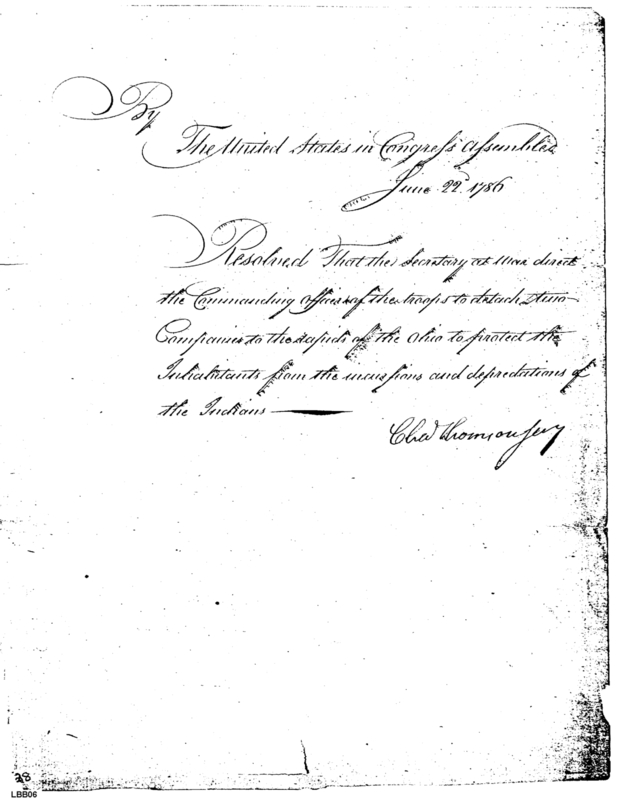 By
The United States in Congress assembled
June 22d 1786
Resolved That the Secretary at War direct
the Commanding officer of the troops to detach two
Companies to the rapids of the Ohio to protect the
Inhabitants from the incursions and depredations of
the Indians
Chas Thomson secy
38
LBB06